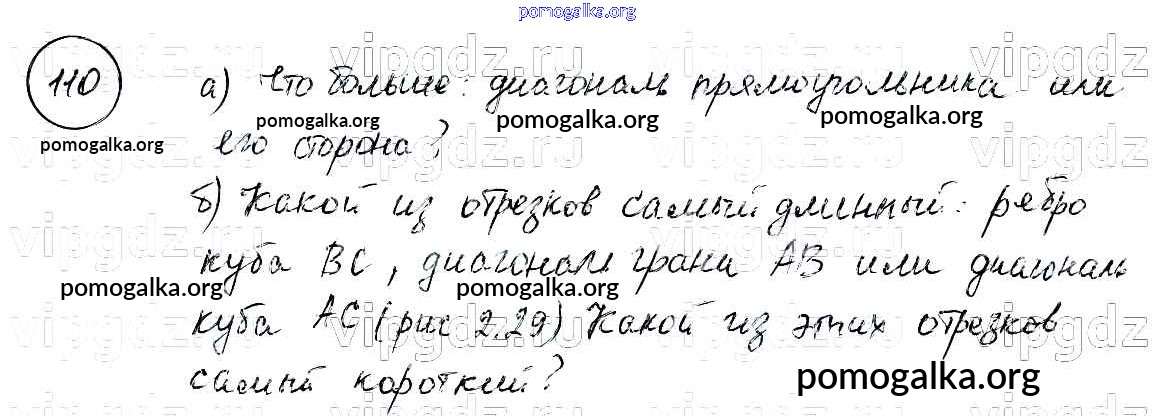 pomogalka.org
vipgdz.ru vipgdz.ru vipgdz.ru vipgdz.ru
110 а) Что больше: диагональ прямоугольника или
pomogalka.org pomogalka.org pomogalka.org
pomogalka.org его сторона?
vipgdz.ru vipgdz.ru vipgdz.ru vipgdz.ru
б) Какой из отрезков самый длинный: ребро
vipgdz.ru vipgdz.ru vipgdz.ru vipgdz.ru
куба BC, диагональ грани AB или диагональ
pomogalka.org pomogalka.org
куба AC (рис 2.29) Какой из этих отрезков
vipgdz.ru vipgdz.ru vipgdz.ru vipgdz.ru
самый короткий?
pomogalka.org